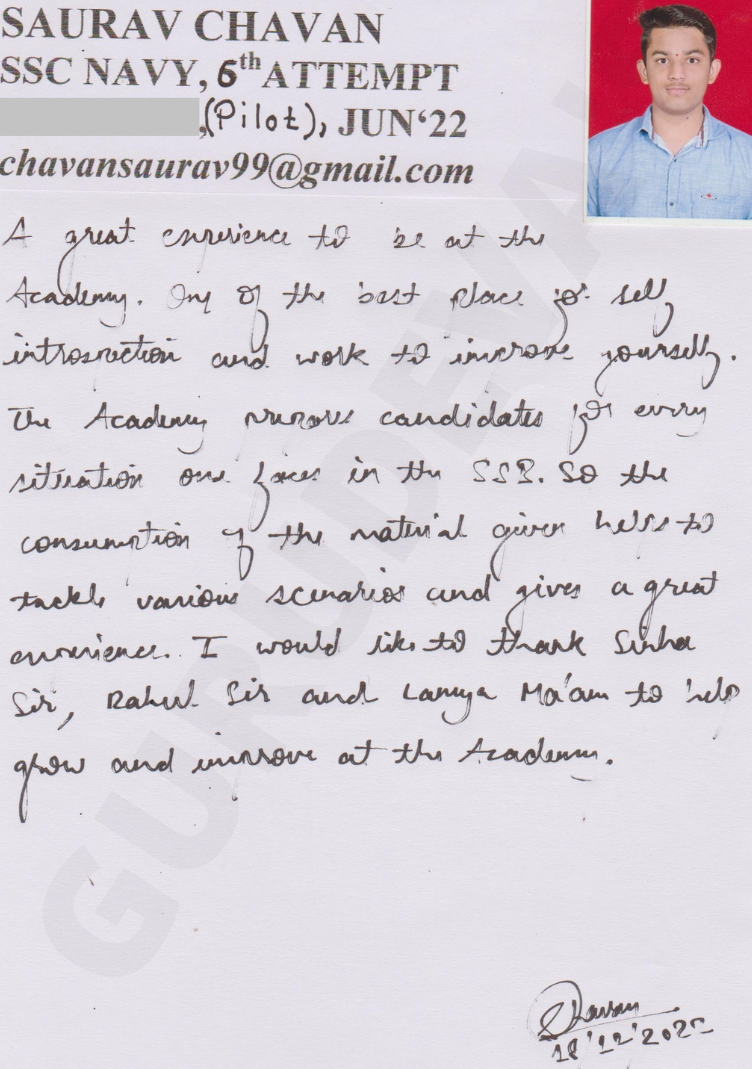 SAURAV CHAVAN
SSC NAVY, 6th ATTEMPT
,(Pilot), JUN‘22
chavansaurav99@gmail.com
A great experience to be at the
Academy. One of the best place for self
introspection and work to improve yourself.
The Academy prepare candidates for every
situation one faces in the SSB. So the
consumption of the material given helps to
tackle various scenarios and gives a great
experience. I would like to thank Sinha
Sir, Rahul Sir and Lamya Ma'am to help
grow and improve at the Academy.
Chavan
18'12'2022